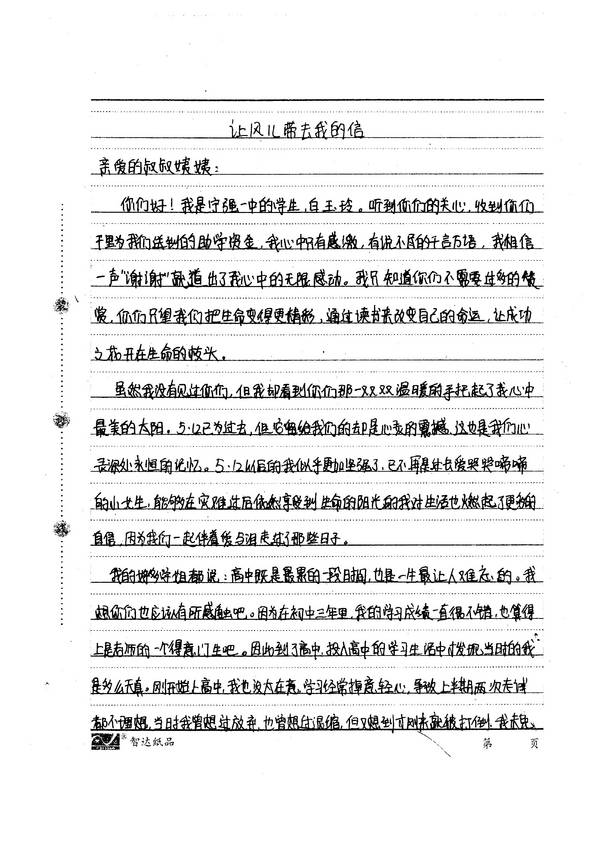 让风儿带去我的信
亲爱的叔叔姨姨：
你们好！我是宁强一中的学生，白玉玲。听到你们的关心，收到你们
千里为我们送到的助学资金，我心中只有感激，有说不尽的千言万语，我相信
一声“谢谢”就道出了我心中的无限感动。我只知道你们不需要过多的赞
赏，你们只望我们把生命变得更精彩，通过读书来改变自己的命运，让成功
之花开在生命的枝头。
虽然我没有见过你们，但我却看到你们那一双双温暖的手把起了我心中
最美的太阳。5·12已为过去，但它留给我们的却是心灵的震撼，这也是我们心
灵深处永恒的记忆。5·12以后的我似乎更加坚强了，已不再是过去爱哭哭啼啼
的小女生，能够在灾难过后依然享受到生命的阳光的我对生活也燃起了更多的
自信，因为我们一起伴着爱与泪走过了那些日子。
我的好多学姐都说：高中既是最累的一段时间，也是一生最让人难忘的。我
想你们也应该有所感触吧。因为在初中三年里，我的学习成绩一直很不错，也算得
上是老师的一个得意门生吧。因此到了高中，投入高中的学习生活中才发现当时的我
是多么天真。刚开始上高中，我也没太在意，学习经常掉意轻心，导致上半期两次考试
都不理想，当时我曾想过放弃，也曾想过退缩，但又想到才刚来就被打倒，我未免
智达纸品
第 页